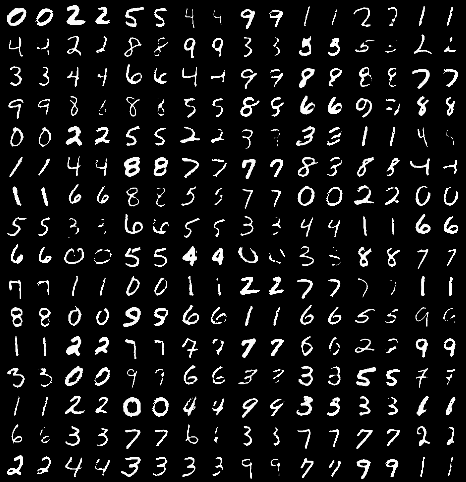 0 0 2 2 5 5 4 4 9 9 1 1 2 2 1 1
4 4 2 2 8 8 9 9 3 3 5 5 5 5 2 2
3 3 4 4 6 6 4 4 9 9 8 8 8 8 7 7
9 9 8 8 8 8 5 5 8 8 6 6 9 9 8 8
0 0 2 2 5 5 2 2 3 3 3 3 1 1 4 4
1 1 4 4 8 8 7 7 7 7 8 8 8 8 4 4
1 1 6 6 8 8 5 5 7 7 0 0 2 2 0 0
5 5 3 3 6 6 5 5 3 3 4 4 1 1 6 6
6 6 0 0 5 5 4 4 0 0 3 3 8 8 7 7
7 7 1 1 0 0 1 1 2 2 7 7 7 7 1 1
8 8 0 0 9 9 6 6 1 1 6 6 5 5 9 9
1 1 2 2 7 7 7 7 7 7 6 6 2 2 9 9
3 3 0 0 9 9 6 6 3 3 3 3 5 5 7 7
1 1 2 2 0 0 4 4 9 9 3 3 3 3 1 1
6 6 3 3 7 7 6 6 3 3 7 7 7 7 2 2
2 2 4 4 3 3 3 3 9 9 7 7 9 9 1 1